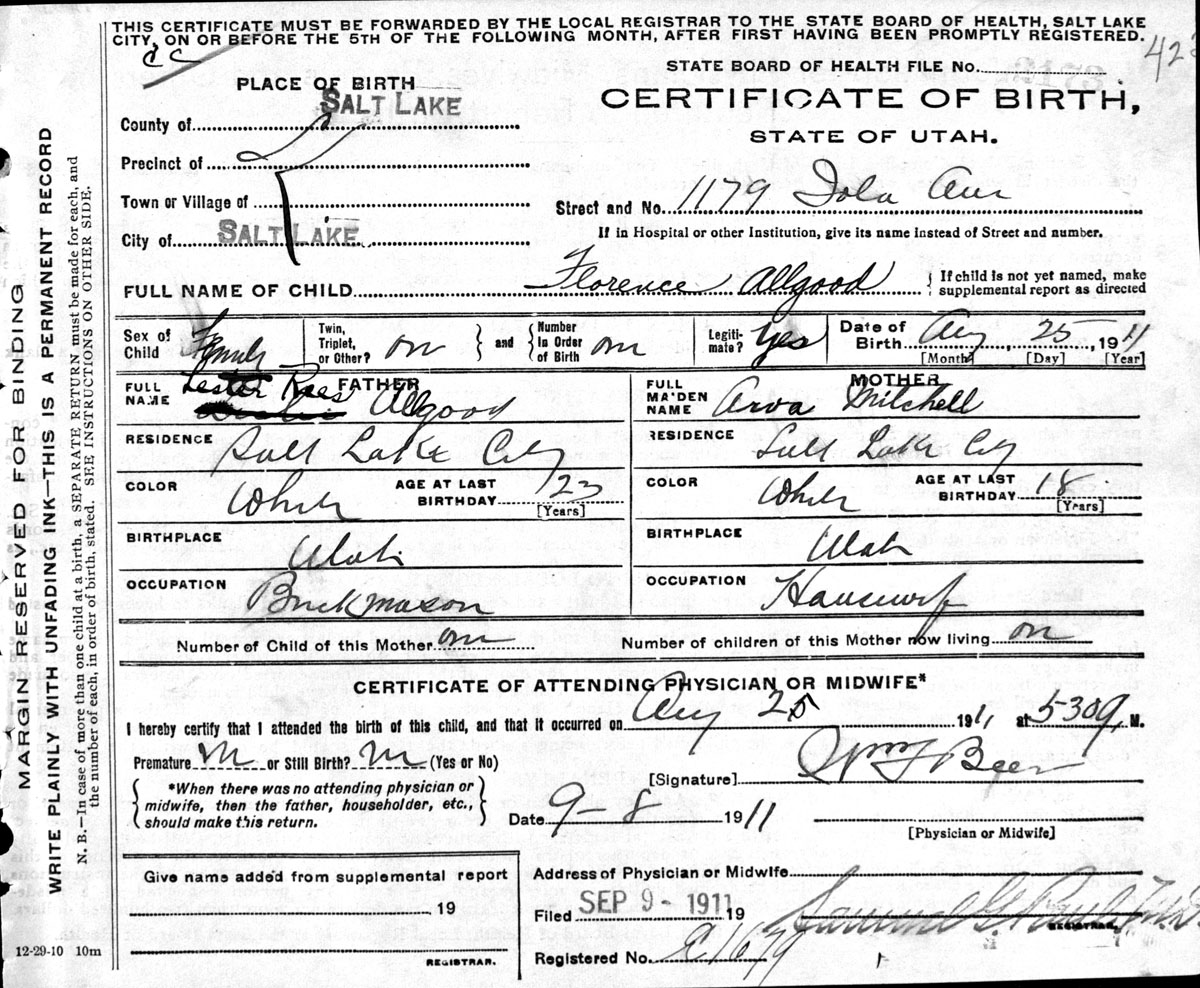 THIS CERTIFICATE MUST BE FORWARDED BY THE LOCAL REGISTRAR TO THE STATE BOARD OF HEALTH, SALT LAKE
CITY, ON OR BEFORE THE 5TH OF THE FOLLOWING MONTH, AFTER FIRST HAVING BEEN PROMPTLY REGISTERED.
STATE BOARD OF HEALTH FILE No.
PLACE OF BIRTH
CERTIFICATE OF BIRTH,
STATE OF UTAH.
County of SALT LAKE
Precinct of
Town or Village of
Street and No. 1179 Iola Ave
City of SALT LAKE
If in Hospital or other Institution, give its name instead of Street and number.
FULL NAME OF CHILD Florence Allgood { If child is not yet named, make supplemental report as directed
Sex of Child Female Twin, Triplet, or Other? } and { Number in Order of Birth Legiti-mate? Yes Date of Birth Aug 25, 1911
[Month] [Day] [Year]
FATHER
FULL NAME Lester Rees Allgood
RESIDENCE Salt Lake City
COLOR White AGE AT LAST BIRTHDAY 23 [Years]
BIRTHPLACE Utah
OCCUPATION Brick mason
MOTHER
FULL MAIDEN NAME Arva Mitchell
RESIDENCE Salt Lake City
COLOR White AGE AT LAST BIRTHDAY 18 [Years]
BIRTHPLACE Utah
OCCUPATION Housewife
Number of Child of this Mother Number of children of this Mother now living
CERTIFICATE OF ATTENDING PHYSICIAN OR MIDWIFE*
I hereby certify that I attended the birth of this child, and that it occurred on Aug 25 1911, at 530 M.
Premature or Still Birth? (Yes or No)
[Signature] Wm F Beer
{ *When there was no attending physician or midwife, then the father, householder, etc., should make this return. }
Date 9-8 1911
[Physician or Midwife]
Give name added from supplemental report
19
REGISTRAR.
Address of Physician or Midwife
Filed SEP 9 - 1911 19
REGISTRAR.
Registered No.
12-29-10 10m
MARGIN RESERVED FOR BINDING
WRITE PLAINLY WITH UNFADING INK—THIS IS A PERMANENT RECORD
N. B.—In case of more than one child at a birth, a SEPARATE RETURN must be made for each, and
the number of each, in order of birth, stated. SEE INSTRUCTIONS ON OTHER SIDE.